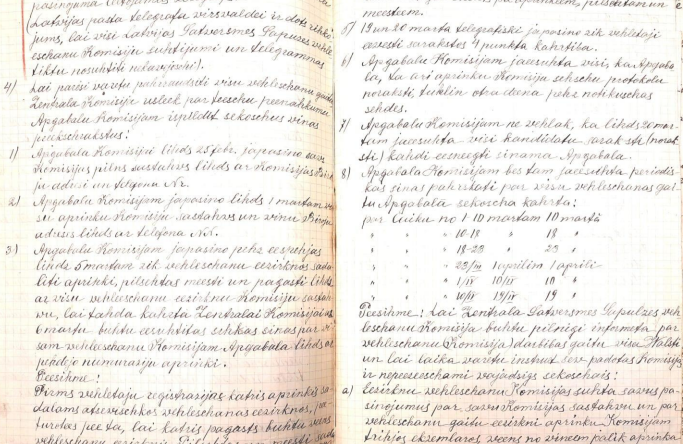 (Latvijas pasta telegrafu virsvaldei ir dots rihko-
jums, lai visi Latvijas Satversmes Sapulzes vehle-
schanu Komisiju suhtijumi un telegrammas
tiktu nosuhtiti nekavejoschi).
4) Lai pareisi varetu pahrraudsidt visu vehleschanu gaitu
Zentrala Komisija useek par teeschu peenahkumu
Apgabalu Komisijam ispildit sekoschus vinas
preekschrakstus:
1) Apgabala Komisijai lihds 25 febr. japasino savs
Komisijas pilns sastahvs lihds ar Komisijas Biroja
adresi un telefona Nr.
2) Apgabalu Komisijam japasino lihds 1 martam
aprinku Komisiju sastahvs un vinu Biroju
adreses lihds ar telefona NN.
3) Apgabalu Komisijam japasino pehz eespehjas
lihds 5 martam zik vehleschanu eezirknos sada-
liti aprinki, pilsehtas meesti un pagasti lihds
ar visu vehleschanu eezirknu Komisiju sastah-
wu, lai tahda kahrta Zentralai Komisijai us
6 martu buhtu eeruhtitas sehkas sinas par vi-
sam vehleschanu Komisijam Apgabala lihds ar
peedejo numuraziju aprinki.
Peesihme:
Pirms vehletaju registrazijas katris aprinkis sa-
dalams atsevischkos vehleschanas eezirknos, pee-
turotes pee ta, lai katrs pagasts buhtu weens
vehleschanu eezirknis. Pilsehtas un meesti
meesteem.
5) 19 un 20 marta telegrafiski japasino zik vehletaji
eenesti sarakstos 4 punkta kahrtiba.
6) Apgabalu Komisijam jaeesuhta visi, ka Apgaba-
la, ta ari aprinku Komisiju sehschu protokolu
noraksti, tuhlin otra deena pehz notikuschas
sehdes.
7) Apgabalu Komisijam ne vehlak, ka lihds 20 mar-
tam jaeesuhta visi kandidatu saraksti (norak-
sti) kahdi eesneegti sinama Apgabala.
8) Apgabala Komisijam bes tam jaeesuhta periodis-
kas sinas pahrskati par visu vehleschanas gai-
tu Apgabala sekoscha kahrta:
par laiku no 1-10 martam 10 martâ
" " " 10-18 " 18 "
" " " 18-23 " 23 "
" " " 23/III 1 aprilim 1 aprili
" " " 1/IV 10/IV 10 "
" " " 10/IV 19/IV 19 "
Peesihme: Lai Zentrala Satversmes Sapulzes veh-
leschanu Komisija buhtu pilnigi informeta par
vehleschanu Komisiju darbibas gaitu visa Walsti
un lai laika varetu instruet sev padotas Komisijas
ir nepeezeeschami vajadsigs sekoschais:
a) Eezirknu vehleschanu Komisijas suhta savus pa-
sinojumus par savu Komisijas sastahvu un par
vehleschanu gaitu eezirkni aprinku Komisijam
trihjos eksemplaros weens no vineem paliek aprinka